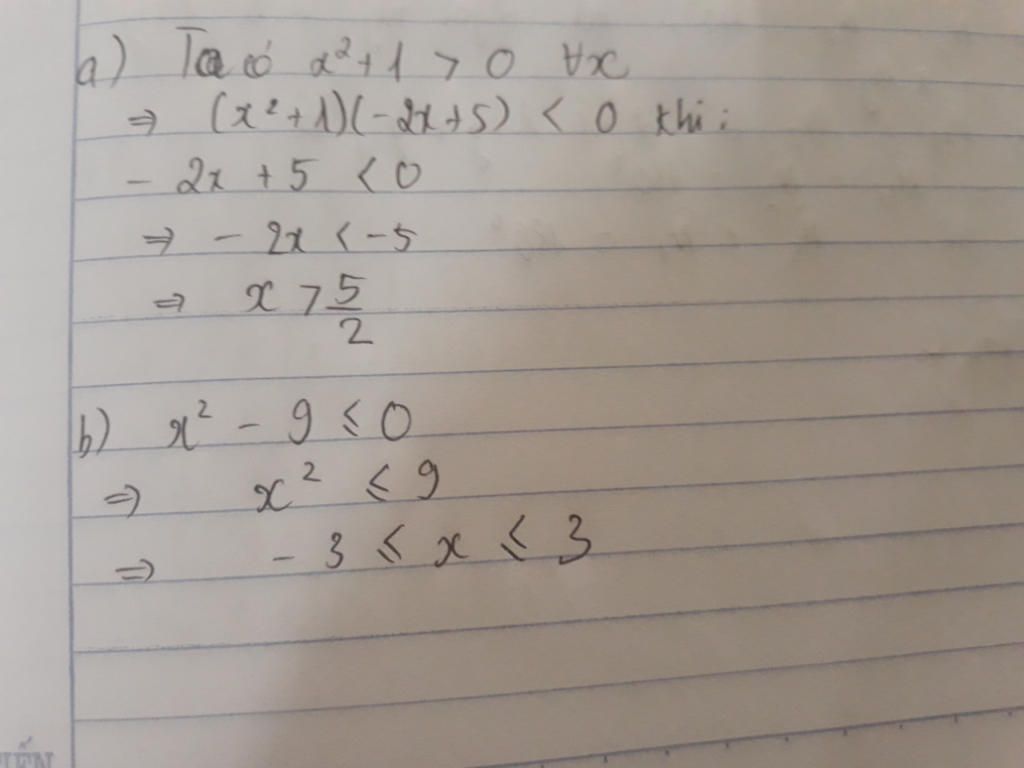 a) Ta có x² + 1 > 0 ∀x
⇒ (x² + 1)(-2x+5) < 0 khi:
- 2x + 5 < 0
⇒ - 2x < -5
⇒ x > 5/2
b) x² - 9 ≤ 0
⇒ x² ≤ 9
⇒ - 3 ≤ x ≤ 3